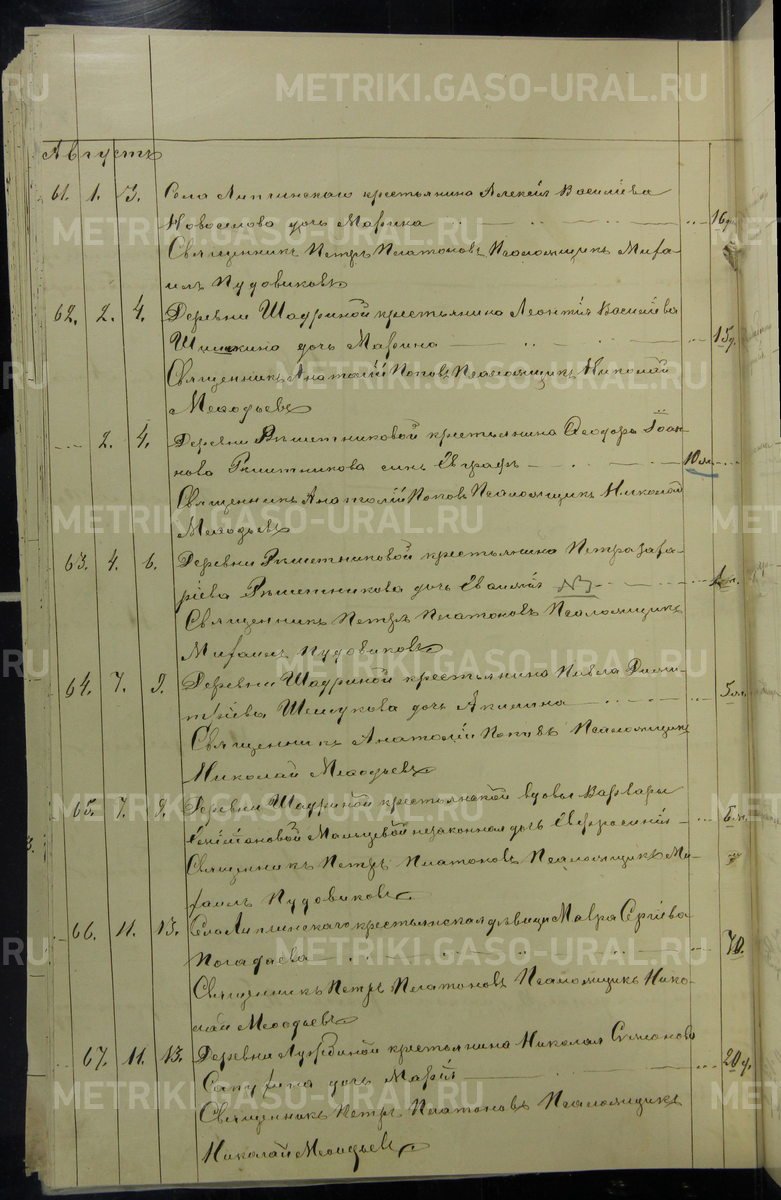 METRIKI.GASO-URAL.RU
Августъ
61. 1. 3. Села Липинскаго крестьянина Алексѣя Василіева
Новоселова дочь Марика 16 д.
Священникъ Петръ Платоновъ Псаломщикъ Миха-
илъ Пудовиковъ
62. 2. 4. Деревни Шадриной крестьянина Леонтія Василіева
Шишкина дочь Марина 15 д.
Священникъ Анатолій Поповъ Псаломщикъ Николай
Меѳодьевъ
2. 4. Деревни Рѣшетниковой крестьянина Ѳеодора Іоан-
нова Рѣшетникова сынъ Евграфъ 10 м.
Священникъ Анатолій Поповъ Псаломщикъ Николай
Меѳодьевъ
63. 4. 6. Деревни Рѣшетниковой крестьянина Петра Заха-
ріева Рѣшетникова дочь 1 м.
Священникъ Петръ Платоновъ Псаломщикъ
Михаилъ Пудовиковъ
64. 7. 9. Деревни Шадриной крестьянина Павла Дими-
тріева дочь Акилина 5 м.
Священникъ Анатолій Поповъ Псаломщикъ
Николай Меѳодьевъ
65. 7. 9. Деревни Шадриной крестьянской вдовы Варвары
Мальцевой незаконная дочь Евфросинія 6 м.
Священникъ Петръ Платоновъ Псаломщикъ Ми-
хаилъ Пудовиковъ
66. 11. 13. Села Липинскаго крестьянская дѣвица Мавра Сергіева
Погадаева 70.
Священникъ Петръ Платоновъ Псаломщикъ Нико-
лай Меѳодьевъ
67. 11. 13. Деревни Лужбиной крестьянина Николая Симеонова
дочь Марія 20 д.
Священникъ Петръ Платоновъ Псаломщикъ
Николай Меѳодьевъ